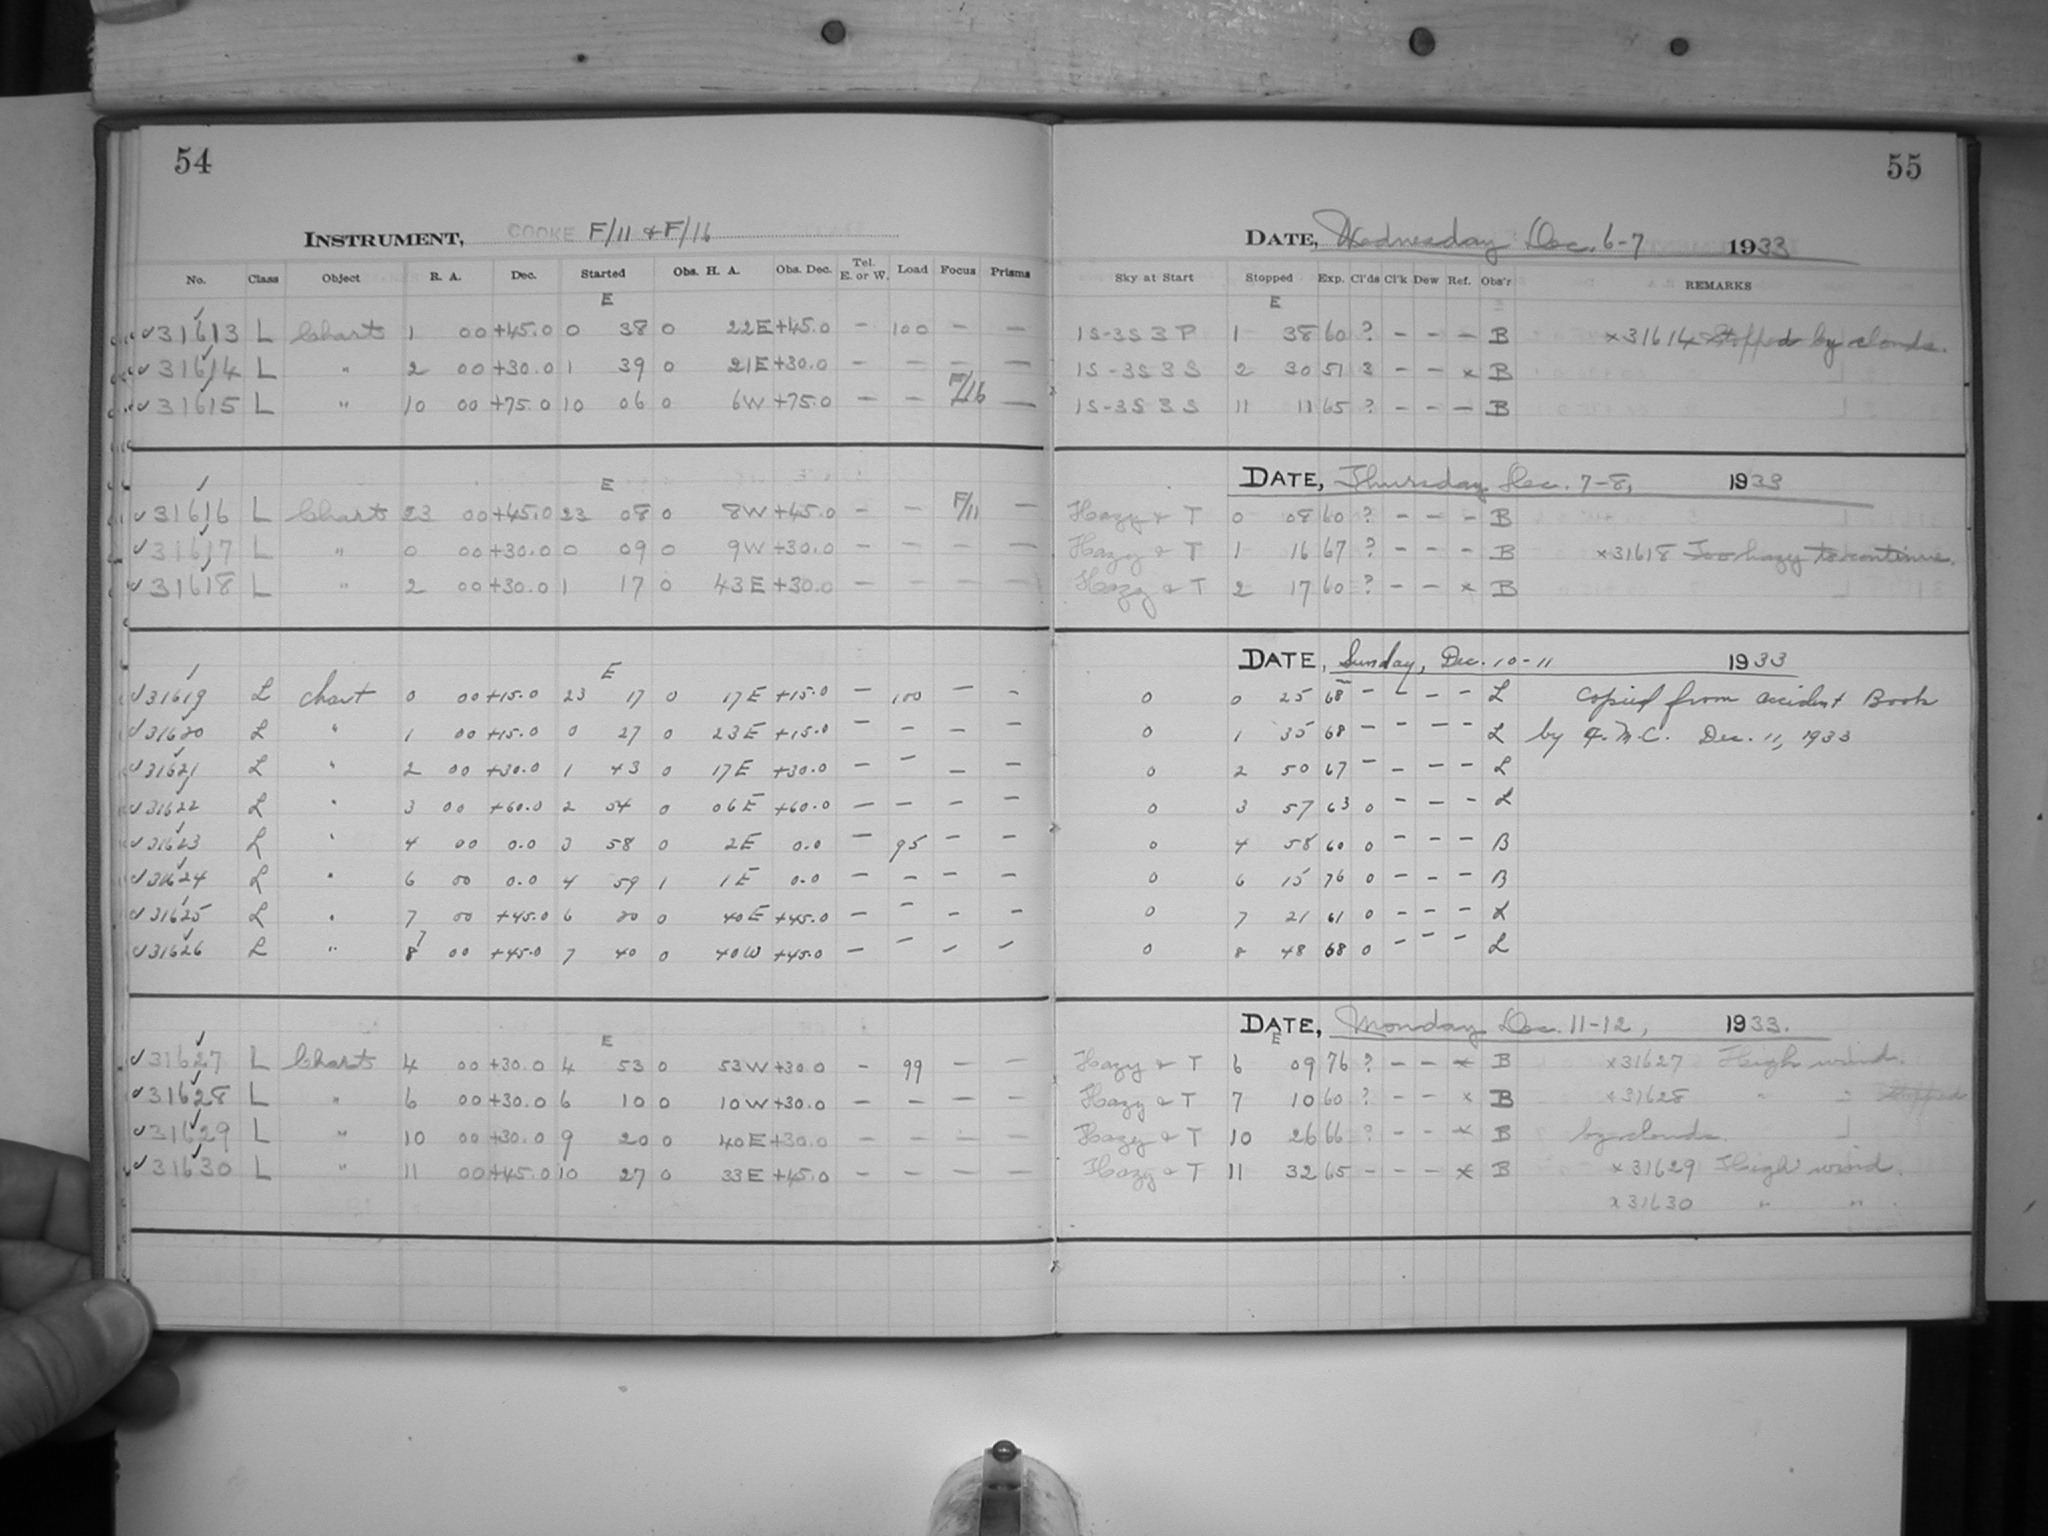 54
INSTRUMENT, COOKE F/11 & F/16
No. Class Object R. A. Dec. Started Obs. H. A. Obs. Dec. Tel. E. or W. Load Focus Prisms
E
✓31613 L Chart 1 00 +45.0 0 38 0 22E +45.0 – 100 – –
✓31614 L " 2 00 +30.0 1 39 0 21E +30.0 – – – –
✓31615 L " 10 00 +75.0 10 06 0 6W +75.0 – – F/16 –
E
✓31616 L Chart 23 00 +45.0 23 08 0 8W +45.0 – – F/11 –
✓31617 L " 0 00 +30.0 0 09 0 9W +30.0 – – – –
✓31618 L " 2 00 +30.0 1 17 0 43E +30.0 – – – –
E
✓31619 L Chart 0 00 +15.0 23 17 0 17E +15.0 – 100 – –
✓31620 L " 1 00 +15.0 0 27 0 23E +15.0 – – – –
✓31621 L " 2 00 +30.0 1 43 0 17E +30.0 – – – –
✓31622 L " 3 00 +60.0 2 54 0 06E +60.0 – – – –
✓31623 L " 4 00 0.0 3 58 0 2E 0.0 – 95 – –
✓31624 L " 6 00 0.0 4 59 1 1E 0.0 – – – –
✓31625 L " 7 00 +45.0 6 20 0 40E +45.0 – – – –
7
✓31626 L " 8 00 +45.0 7 40 0 40W +45.0 – – – –
E
✓31627 L Chart 4 00 +30.0 4 53 0 53W +30.0 – 99 – –
✓31628 L " 6 00 +30.0 6 10 0 10W +30.0 – – – –
✓31629 L " 10 00 +30.0 9 20 0 40E +30.0 – – – –
✓31630 L " 11 00 +45.0 10 27 0 33E +45.0 – – – –
55
DATE, Wednesday Dec. 6-7 1933
Sky at Start Stopped Exp. Cl'ds Cl'k Dew Ref. Obs'r REMARKS
E
1S-3S 3 P 1 38 60 ? – – – B ×31614 Stopped by clouds.
1S-3S 3 S 2 30 51 3 – – × B
1S-3S 3 S 11 11 65 ? – – – B
DATE, Thursday Dec. 7-8, 1933
Hazy & T 0 08 60 ? – – – B
Hazy & T 1 16 67 ? – – – B ×31618 Too hazy to continue.
Hazy & T 2 17 60 ? – – × B
DATE, Sunday, Dec. 10-11 1933
0 0 25 68 – – – – L Copied from accident Book
0 1 35 68 – – – – L by F.M.C. Dec. 11, 1933
0 2 50 67 – – – – L
0 3 57 63 0 – – – L
0 4 58 60 0 – – – B
0 6 15 76 0 – – – B
0 7 21 61 0 – – – L
0 8 48 68 0 – – – L
DATE, Monday Dec. 11-12, 1933.
E
Hazy & T 6 09 76 ? – – × B ×31627 High wind.
Hazy & T 7 10 60 ? – – × B ×31628 " " Stopped
Hazy & T 10 26 66 ? – – × B by clouds.
Hazy & T 11 32 65 – – – × B ×31629 High wind.
×31630 " " .